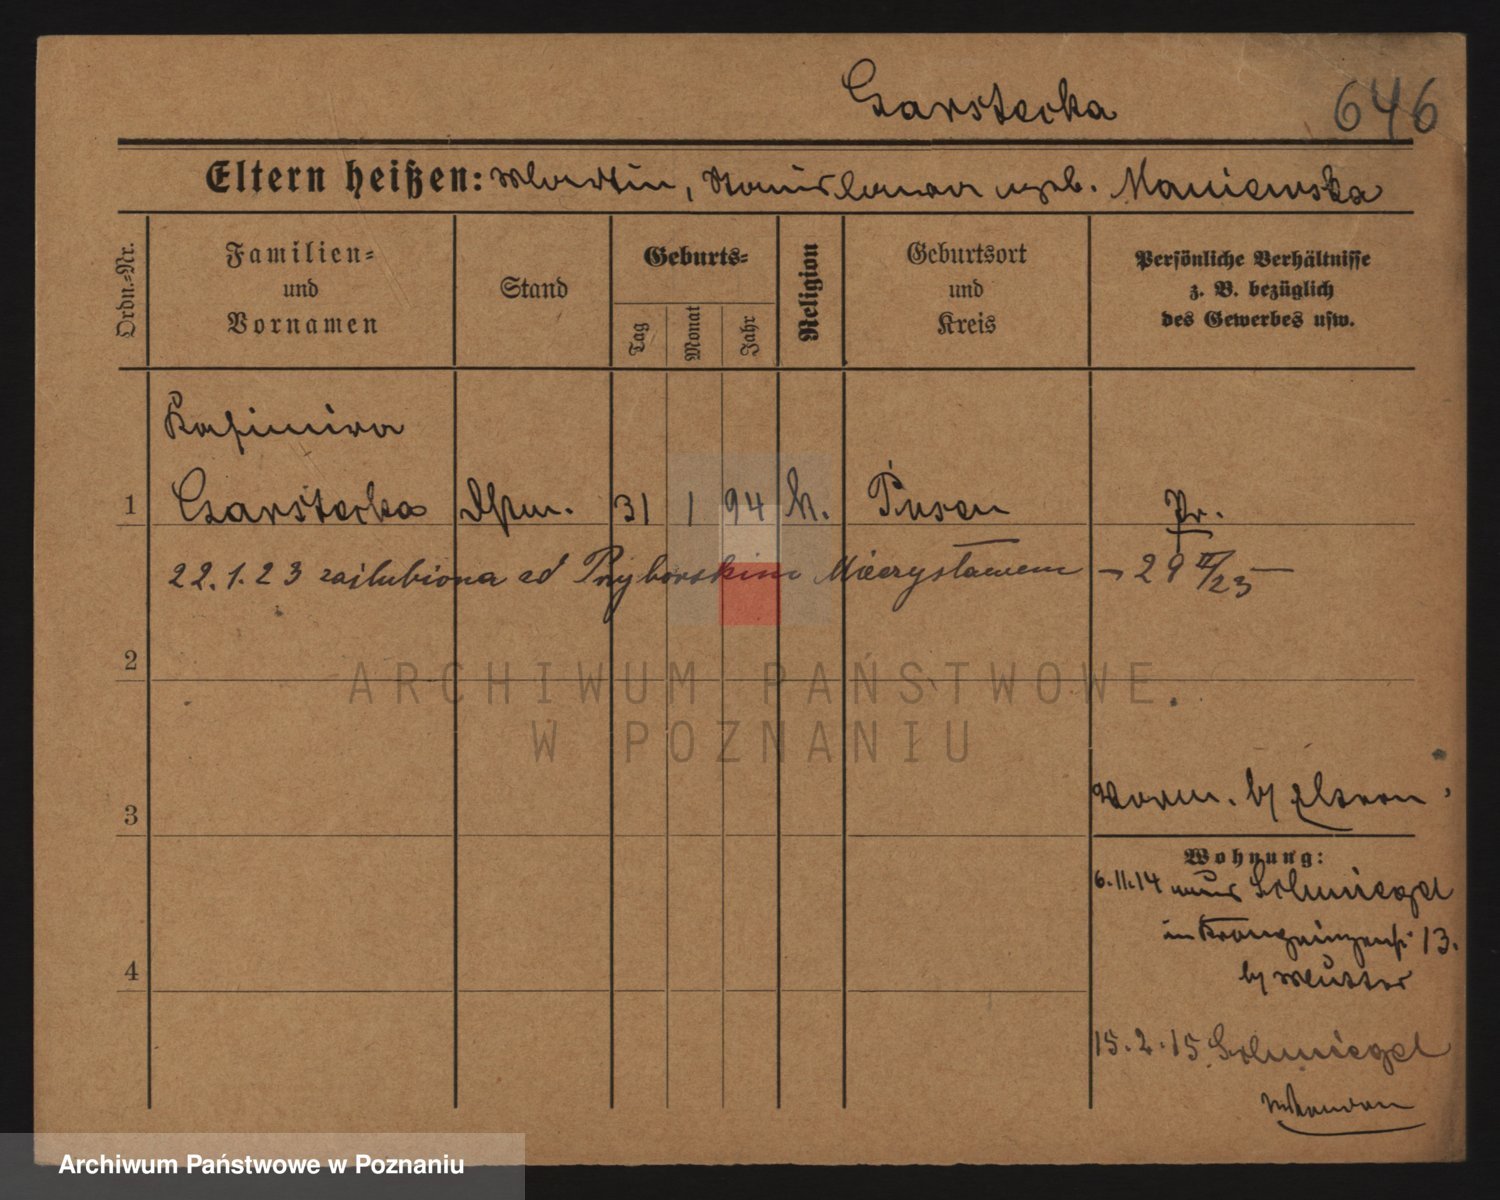 Czarstecka 646
Eltern heißen: Martin, Stanislawa geb. Maniewska
Ordn.-Nr.
Familien-
und
Vornamen
Stand
Geburts-
Tag
Monat
Jahr
Religion
Geburtsort
und
Kreis
Persönliche Verhältnisse
z. B. bezüglich
des Gewerbes usw.
Kasimira
1 Czarstecka 31 1 94 k. Posen Pr.
22.1.23 zaślubiona Przyborskim Mieczysławem - 29 II/23 -
2
ARCHIWUM PAŃSTWOWE
W POZNANIU
3 vorm. by Eltern
Wohnung:
6.11.14 aus Schmiegel
in Kronprinzenstr 13.
by Mutter
4
15.2.15 Schmiegel
Archiwum Państwowe w Poznaniu